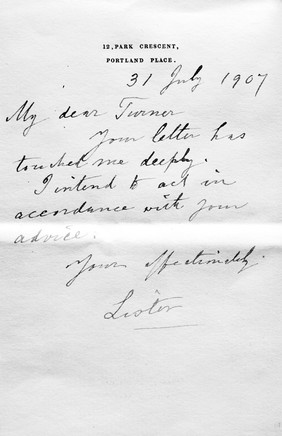 12, PARK CRESCENT,
PORTLAND PLACE.
31 July 1907
My dear Turner
Your letter has
touched me deeply.
I intend to act in
accordance with your
advice.
Yours affectionately
Lister